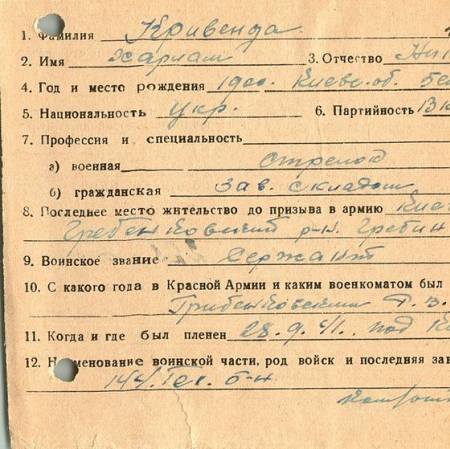 1. Фамилия Кривенда
2. Имя Харлам 3. Отчество Ник
4. Год и место рождения 1900. Киевс. об.
5. Национальность укр. 6. Партийность ВК
7. Профессия и специальность
а) военная стрелок
б) гражданская зав. складом
8. Последнее место жительство до призыва в армию Кие
р-н.
9. Воинское звание Сержант
10. С какого года в Красной Армии и каким военкоматом был
Р. В.
11. Когда и где был пленен 28.9.41. под К
12. Наименование воинской части, род войск и последняя зан
144. б-н.